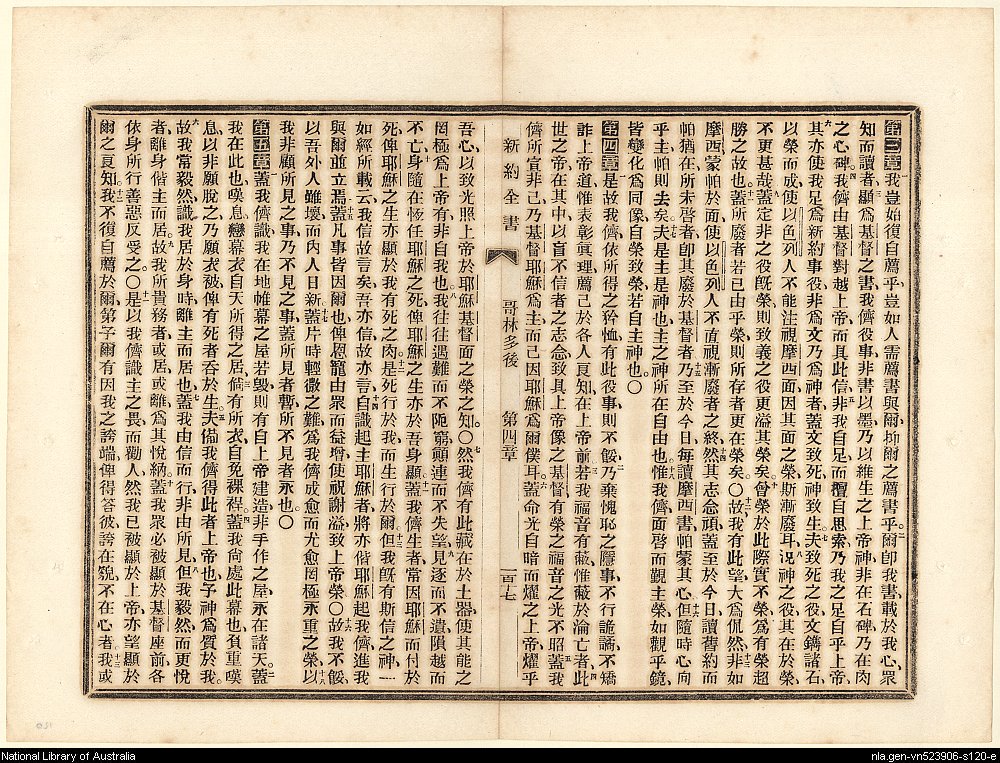 第三章我豈始復自薦乎豈如人需薦書與爾抑爾之薦書乎爾卽我書載於我心衆
知而讀者顯爲基督之書我儕役事非書以墨乃以維生之上帝神非在石碑乃在肉
之心碑我儕由基督對越上帝而具此信非我自足而擅自思索乃我之足自乎上帝
其亦使我足爲新約事役非爲文乃爲神者蓋文致死神致生夫致死之役文鐫諸石
以榮而成使以色列人不能注視摩西面因其面之榮斯漸廢耳况神之役其在於榮
不更甚哉蓋定非之役旣榮則致義之役更溢其榮矣曾榮於此際實不榮爲有榮超
勝之故也蓋所廢者若已由乎榮則所存者更在榮矣〇故我有此望大爲侃然非如
摩西蒙帕於面使以色列人不直視漸廢者之終然其志念頑蓋至於今日讀舊約而
帕猶在所未啓者卽其廢於基督者乃至於今日每讀摩西書帕蒙其心但隨時心向
乎主帕則去矣夫是主是神也主之神所在自由也惟我儕面啓而覩主榮如觀乎鏡
皆變化爲同像自榮致榮若自主神也〇
第四章是故我儕依所得之矜恤有此役事則不餒乃棄愧耻之隱事不行詭譎不矯
詐上帝道惟表彰眞理薦己於各人良知在上帝前若我福音有蔽惟蔽於淪亡者此
世之帝在其中以盲不信者之志念致具上帝像之基督有榮之福音之光不昭蓋我
儕所宣非己乃基督耶穌爲主而己因耶穌爲爾僕耳蓋命光自暗而燿之上帝燿乎
新約全書
哥林多後
第四章
一百十七
吾心以致光照上帝於耶穌基督面之榮之知〇然我儕有此藏在於土器使其能之
罔極爲上帝有非自我也我往往遇難而不阨窮顚連而不失望見逐而不遺隕越而
不亡身隨在恆任耶穌之死俾耶穌之生亦於吾身顯蓋我儕生者常因耶穌而付於
死俾耶穌之生亦顯於我有死之肉是死行於我而生行於爾但我旣有斯信之神
如經所載云我信故言矣吾亦信故亦言自識起主耶穌者將亦偕耶穌起我儕進我
與爾並立焉蓋凡事皆因爾也俾恩寵由衆而益增使祝謝溢致上帝榮〇故我不餒
以吾外人雖壞而內人日新蓋片時輕微之難爲我儕成愈而尤愈罔極永重之榮以
我非顧所見之事乃不見之事蓋所見者暫所不見者永也〇
第五章蓋我儕識我在地帷幕之屋若毀則有自上帝建造非手作之屋永在諸天蓋
我在此也嘆息戀幕衣自天所得之居倘有所衣自免裸裎蓋我尙處此幕也負重嘆
息以非願脫之乃願衣被俾有死者吞於生夫備我儕得此者上帝也予神爲質於我
故我常毅然識我居於身時離主而居也蓋我由信而行非由所見但我毅然而更悅
者離身偕主而居故我所貴務者或居或離爲其悅納蓋我衆必被顯於基督座前各
依身所行善惡反受之〇是以我儕識主之畏而勸人然我已被顯於上帝亦望顯於
爾之良知我不復自薦於爾第予爾有因我之誇端俾得答彼誇在貌不在心者我或
National Library of Australia
nla.gen-vn523906-s120-e